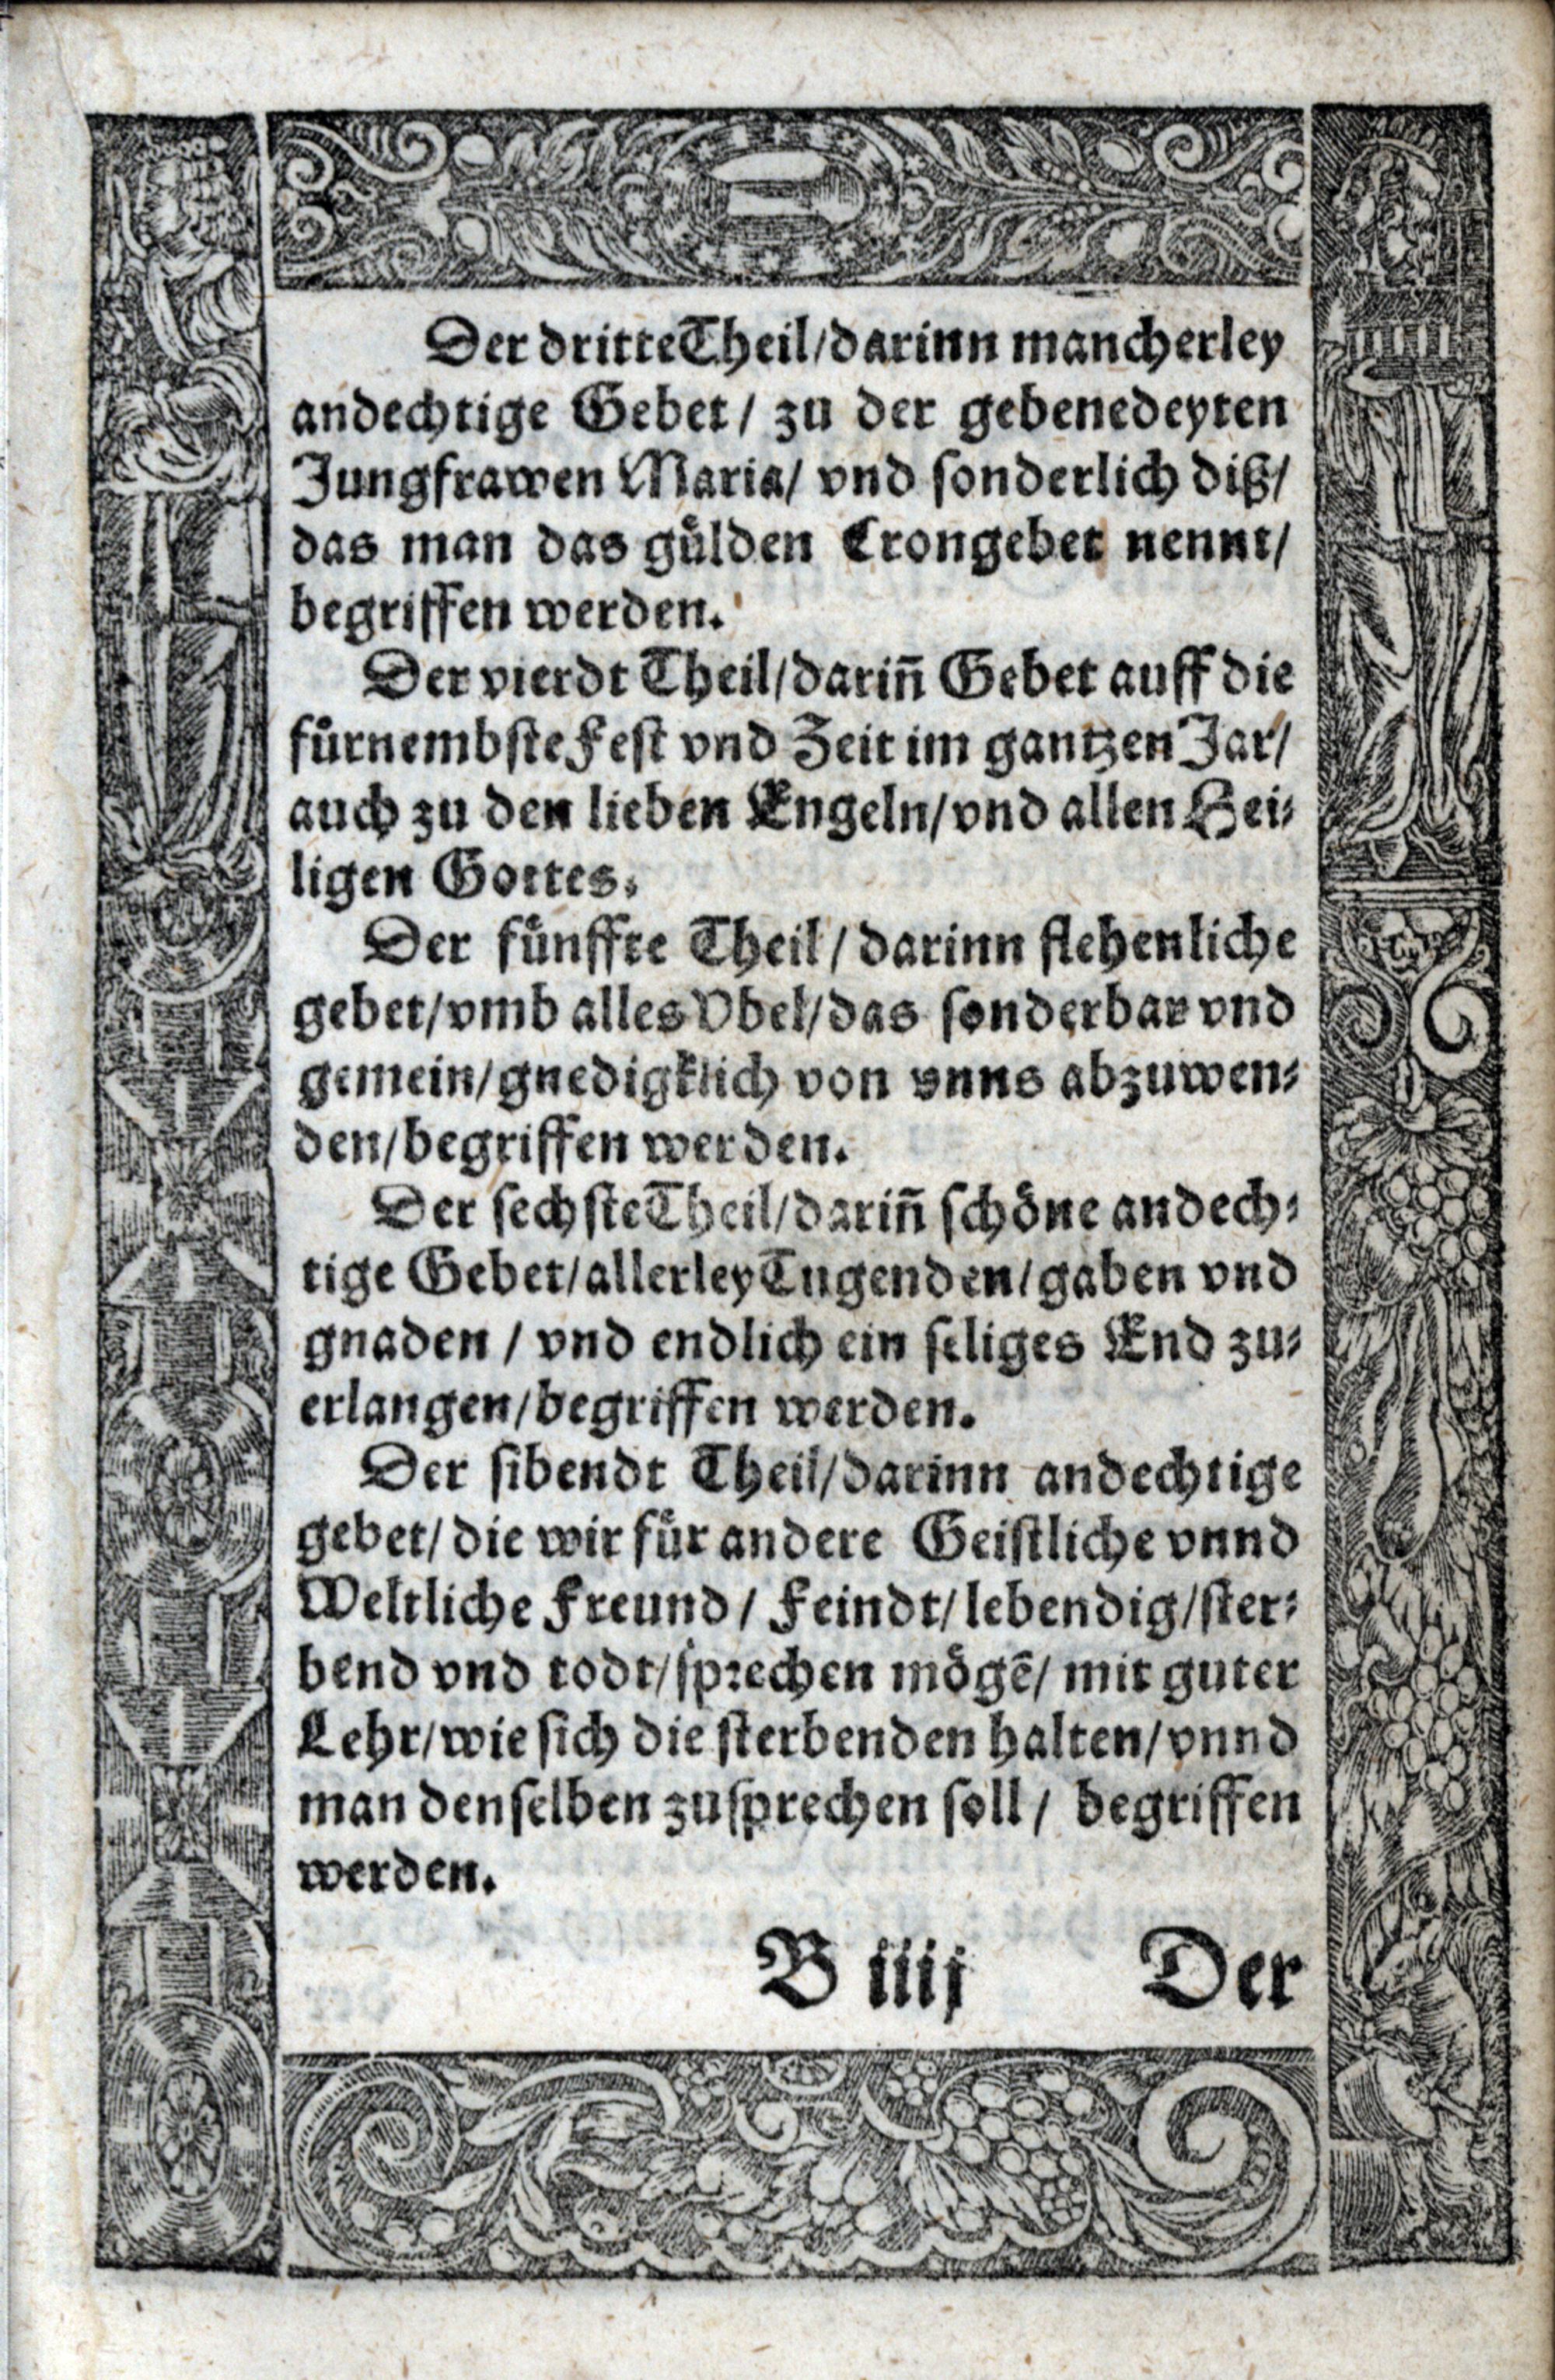 Der dritte Theil/ darinn mancherley
andechtige Gebet/ zu der gebenedeyten
Jungfrawen Maria/ vnd ſonderlich diß/
das man das guͤlden Crongebet nennt/
begriffen werden.
Der vierdt Theil/ darin̄ Gebet auff die
fuͤrnembſte Feſt vnd Zeit im gantzen Jar/
auch zu den lieben Engeln/ vnd allen Hei⸗
ligen Gottes.
Der fuͤnffte Theil/ darinn flehenliche
gebet/ vmb alles Vbel/ das ſonderbar vnd
gemein/ gnedigklich von vnns abzuwen⸗
den/ begriffen werden.
Der ſechſte Theil/ darin̄ ſchoͤne andech⸗
tige Gebet/ allerley Tugenden/ gaben vnd
gnaden/ vnd endlich ein ſeliges End zu⸗
erlangen/ begriffen werden.
Der ſibendt Theil/ darinn andechtige
gebet/ die wir fuͤr andere Geiſtliche vnnd
Weltliche Freund/ Feindt/ lebendig/ ſter⸗
bend vnd todt/ ſprechen moͤgē/ mit guter
Lehr/ wie ſich die ſterbenden halten/ vnnd
man denſelben zuſprechen ſoll/ begriffen
werden.
B iiij Der